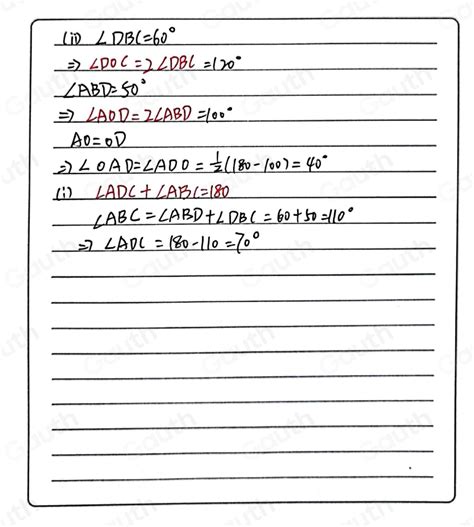 (ii) ∠DBC=60°
⇒ ∠DOC=2∠DBC=120°
∠ABD=50°
⇒ ∠AOD=2∠ABD=100°
AO=OD
⇒ ∠OAD=∠ADO=½(180-100)=40°
(i) ∠ADC+∠ABC=180
∠ABC=∠ABD+∠DBC=60+50=110°
⇒ ∠ADC=180-110=70°
Gauth